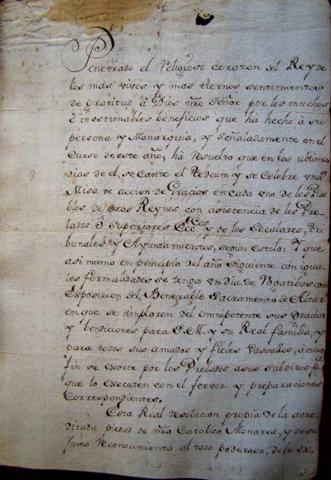 Penetrado el Religioso corazon del Rey de
los mas vivos y mas tiernos sentimientos
de gratitud â Dios nrõ Señor por los muchos
è inestimables beneficios que ha hecho â su
persona y Monarquia, y señaladamente en el
Curso de este año, ha resuelto que en los ultimos
dias de el, se Cante el Tedeum y se Celebre una
Misa de accion de Gracias en cada uno de los Pue
blos de estos Reynos con asistencia de los Pre
lados ô Superiores Ecc.cos y de los Seculares, Tri
bunales y Ayuntamientos, segun estilo: Y que
asi mismo en principio del año siguiente con igua
les formalidades se tenga un dia de Rogativas con
Exposicion del Benerable Sacramento del Altar
en que se imploren del omnipotente sus Gracias
y bendiciones para S.M. y su Real familia, y
para todos sus amados y fieles Vasallos, a cuio
fin se exorte por los Prelados a sus subditos pa
que lo executen con el fervor y preparaciones
Correspondientes.
Esta Real resolucion propia de la acre
ditada piedad de nrõ Catolico Monarca, y de su
justo reconocimiento al todo poderoso, debe